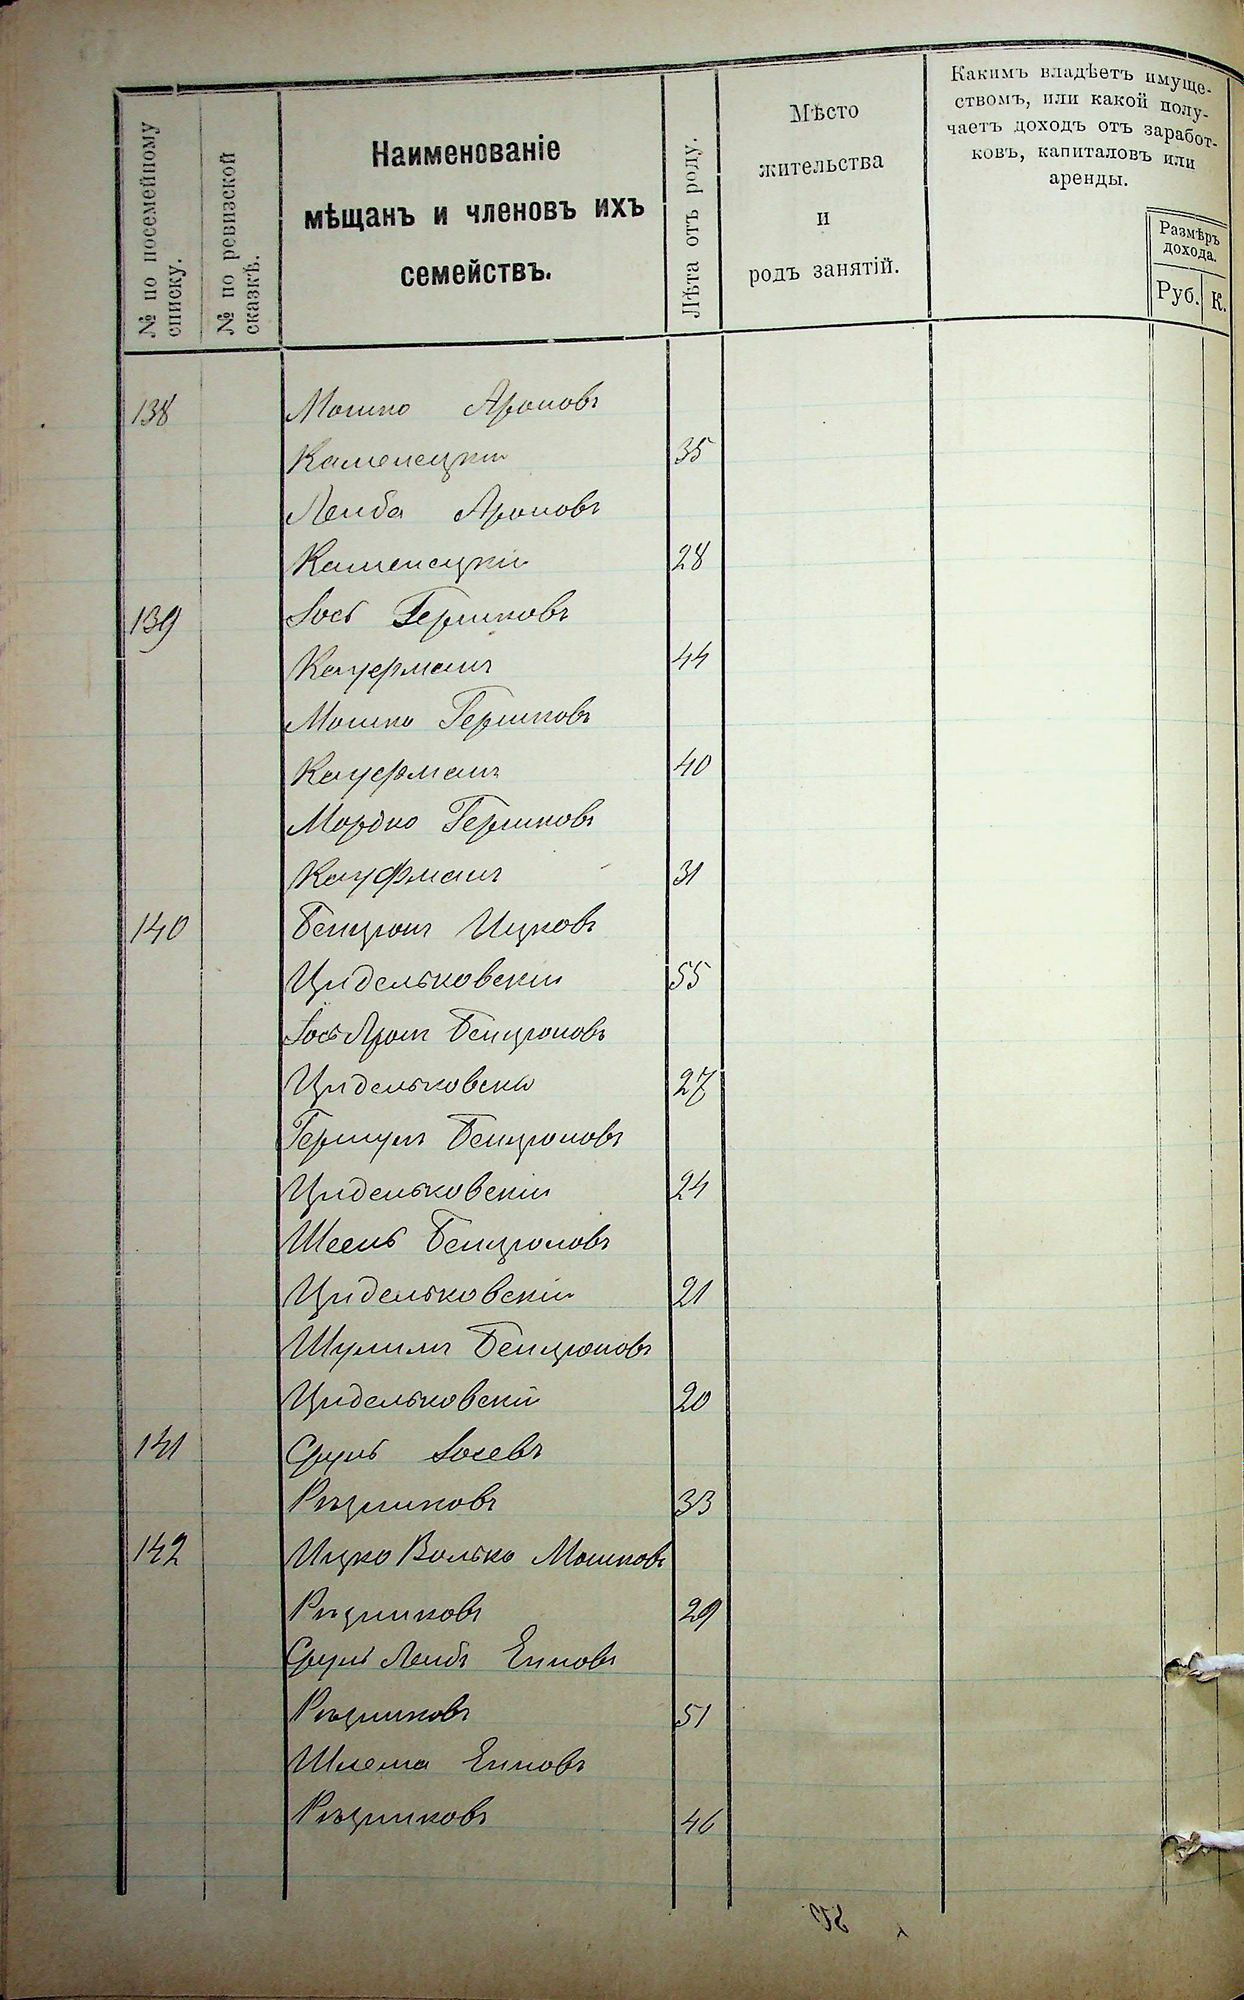 № по посемейному списку.
№ по ревизской сказкѣ.
Наименованіе
мѣщанъ и членовъ ихъ
семействъ.
Лѣта отъ роду.
Мѣсто
жительства
и
родъ занятій.
Какимъ владѣетъ имуще-
ствомъ, или какой полу-
чаетъ доходъ отъ заработ-
ковъ, капиталовъ или
аренды.
Размѣръ
дохода.
Руб. К.
138 Мошко Ароновъ
Каменецкій 35
Лейба Ароновъ
Каменецкій 28
139 Іось Гершковъ
Кауфманъ 44
Мошко Гершковъ
Кауфманъ 40
Мордко Гершковъ
Кауфманъ 31
140 Бенціонъ Ицковъ
Цидельковскій 55
Іось Аронъ Бенціоновъ
Цидельковскій 27
Бенціоновъ
Цидельковскій 24
Бенціоновъ
Цидельковскій 21
Шулимъ Бенціоновъ
Цидельковскій 20
141 Сруль Іосевъ
Рѣзниковъ 33
142 Ицко Волько Мошковъ
Рѣзниковъ 29
Сруль Лейбъ
Рѣзниковъ 51
Шлема
Рѣзниковъ 46